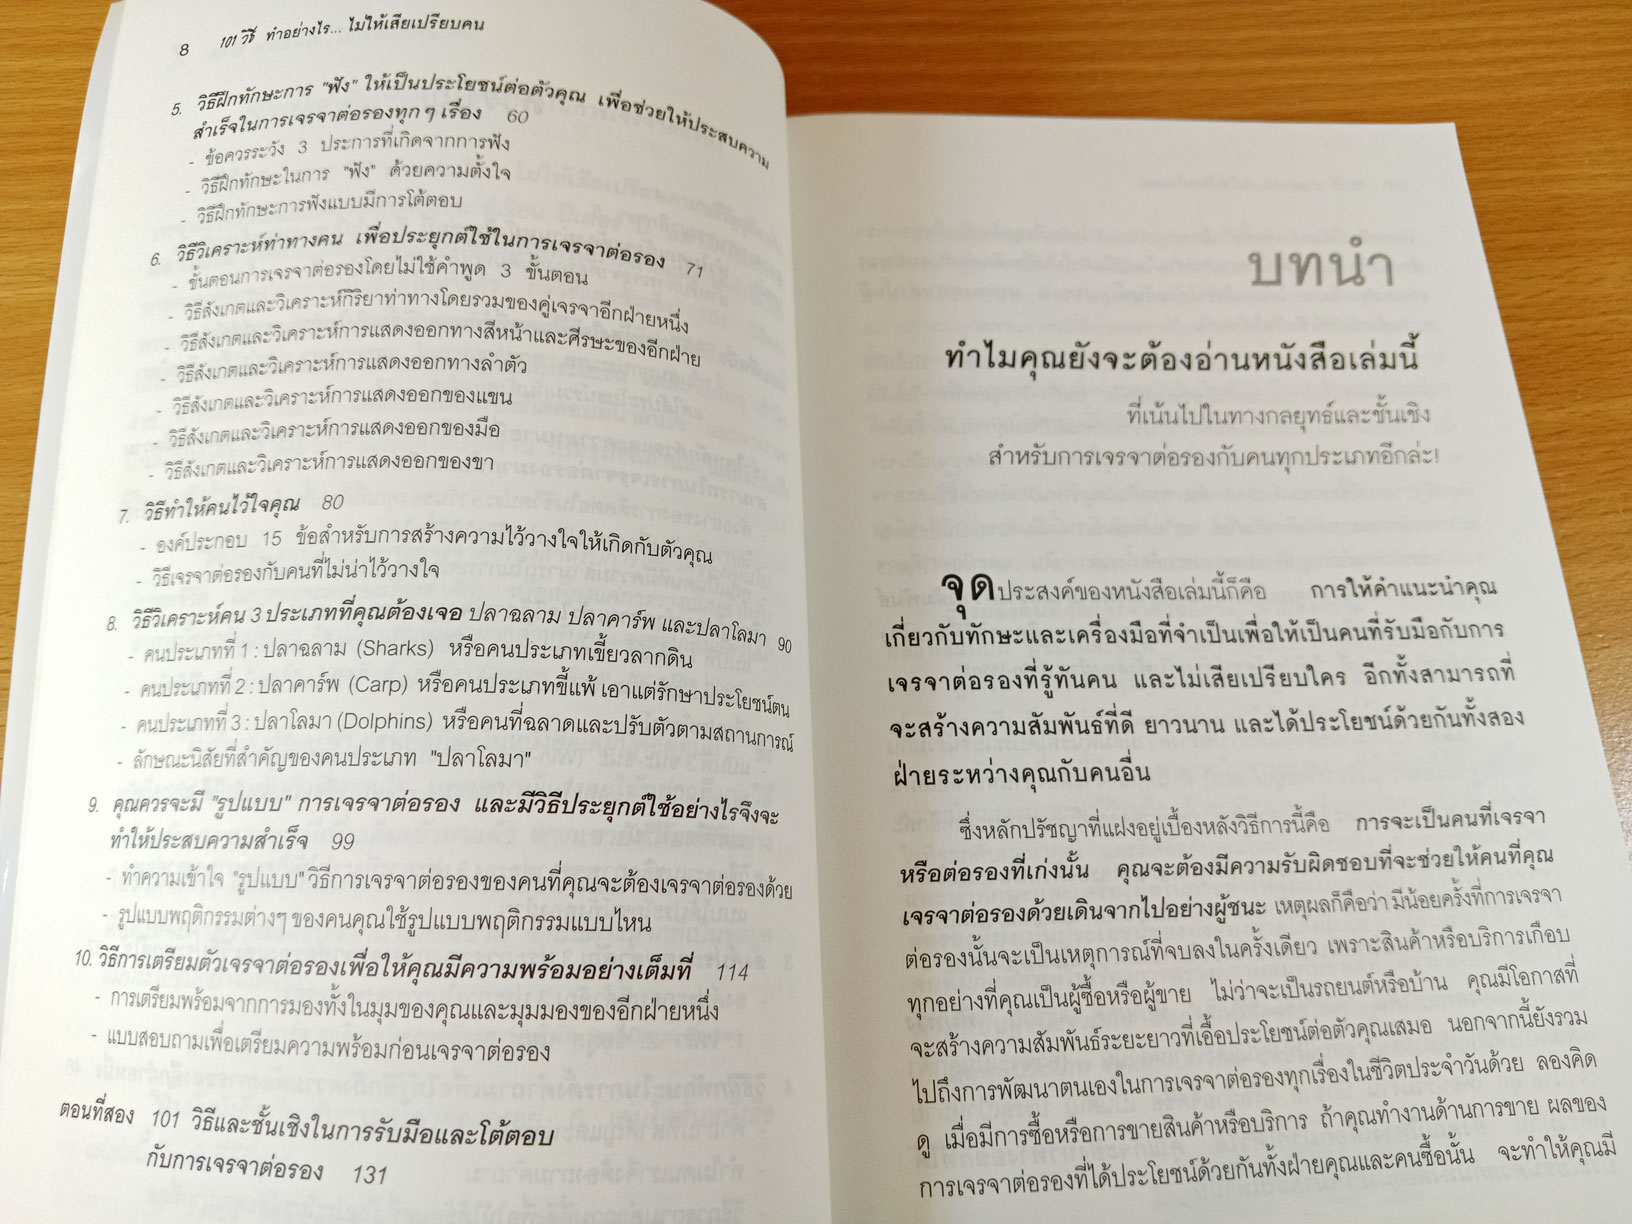 8 101 วิธี ทำอย่างไร... ไม่ให้เสียเปรียบคน
5. วิธีฝึกทักษะการ "ฟัง" ให้เป็นประโยชน์ต่อตัวคุณ เพื่อช่วยให้ประสบความ
สำเร็จในการเจรจาต่อรองทุกๆ เรื่อง 60
- ข้อควรระวัง 3 ประการที่เกิดจากการฟัง
- วิธีฝึกทักษะในการ "ฟัง" ด้วยความตั้งใจ
- วิธีฝึกทักษะการฟังแบบมีการโต้ตอบ
6. วิธีวิเคราะห์ท่าทางคน เพื่อประยุกต์ใช้ในการเจรจาต่อรอง 71
- ขั้นตอนการเจรจาต่อรองโดยไม่ใช้คำพูด 3 ขั้นตอน
- วิธีสังเกตและวิเคราะห์กิริยาท่าทางโดยรวมของคู่เจรจาอีกฝ่ายหนึ่ง
- วิธีสังเกตและวิเคราะห์การแสดงออกทางสีหน้าและศีรษะของอีกฝ่าย
- วิธีสังเกตและวิเคราะห์การแสดงออกทางลำตัว
- วิธีสังเกตและวิเคราะห์การแสดงออกของแขน
- วิธีสังเกตและวิเคราะห์การแสดงออกของมือ
- วิธีสังเกตและวิเคราะห์การแสดงออกของขา
7. วิธีทำให้คนไว้ใจคุณ 80
- องค์ประกอบ 15 ข้อสำหรับการสร้างความไว้วางใจให้เกิดกับตัวคุณ
- วิธีเจรจาต่อรองกับคนที่ไม่น่าไว้วางใจ
8. วิธีวิเคราะห์คน 3 ประเภทที่คุณต้องเจอ ปลาฉลาม ปลาคาร์พ และปลาโลมา 90
- คนประเภทที่ 1 : ปลาฉลาม (Sharks) หรือคนประเภทเขี้ยวลากดิน
- คนประเภทที่ 2 : ปลาคาร์พ (Carp) หรือคนประเภทขี้แพ้ เอาแต่รักษาประโยชน์ตน
- คนประเภทที่ 3 : ปลาโลมา (Dolphins) หรือคนที่ฉลาดและปรับตัวตามสถานการณ์
- ลักษณะนิสัยที่สำคัญของคนประเภท "ปลาโลมา"
9. คุณควรจะมี "รูปแบบ" การเจรจาต่อรอง และมีวิธีประยุกต์ใช้อย่างไรจึงจะ
ทำให้ประสบความสำเร็จ 99
- ทำความเข้าใจ "รูปแบบ" วิธีการเจรจาต่อรองของคนที่คุณจะต้องเจรจาต่อรองด้วย
- รูปแบบพฤติกรรมต่างๆ ของคนคุณใช้รูปแบบพฤติกรรมแบบไหน
10. วิธีการเตรียมตัวเจรจาต่อรองเพื่อให้คุณมีความพร้อมอย่างเต็มที่ 114
- การเตรียมพร้อมจากการมองทั้งในมุมของคุณและมุมมองของอีกฝ่ายหนึ่ง
- แบบสอบถามเพื่อเตรียมความพร้อมก่อนเจรจาต่อรอง
ตอนที่สอง 101 วิธีและชั้นเชิงในการรับมือและโต้ตอบ
กับการเจรจาต่อรอง 131
บทนำ
ทำไมคุณยังจะต้องอ่านหนังสือเล่มนี้
ที่เน้นไปในทางกลยุทธ์และชั้นเชิง
สำหรับการเจรจาต่อรองกับคนทุกประเภทอีกล่ะ!
จุดประสงค์ของหนังสือเล่มนี้ก็คือ การให้คำแนะนำคุณ
เกี่ยวกับทักษะและเครื่องมือที่จำเป็นเพื่อให้เป็นคนที่รับมือกับการ
เจรจาต่อรองที่รู้ทันคน และไม่เสียเปรียบใคร อีกทั้งสามารถที่
จะสร้างความสัมพันธ์ที่ดี ยาวนาน และได้ประโยชน์ด้วยกันทั้งสอง
ฝ่ายระหว่างคุณกับคนอื่น
ซึ่งหลักปรัชญาที่แฝงอยู่เบื้องหลังวิธีการนี้คือ การจะเป็นคนที่เจรจา
หรือต่อรองที่เก่งนั้น คุณจะต้องมีความรับผิดชอบที่จะช่วยให้คนที่คุณ
เจรจาต่อรองด้วยเดินจากไปอย่างผู้ชนะ เหตุผลก็คือว่า มีน้อยครั้งที่การเจรจา
ต่อรองนั้นจะเป็นเหตุการณ์ที่จบลงในครั้งเดียว เพราะสินค้าหรือบริการเกือบ
ทุกอย่างที่คุณเป็นผู้ซื้อหรือผู้ขาย ไม่ว่าจะเป็นรถยนต์หรือบ้าน คุณมีโอกาสที่
จะสร้างความสัมพันธ์ระยะยาวที่เอื้อประโยชน์ต่อตัวคุณเสมอ นอกจากนี้ยังรวม
ไปถึงการพัฒนาตนเองในการเจรจาต่อรองทุกเรื่องในชีวิตประจำวันด้วย ลองคิด
ดู เมื่อมีการซื้อหรือการขายสินค้าหรือบริการ ถ้าคุณทำงานด้านการขาย ผลของ
การเจรจาต่อรองที่ได้ประโยชน์ด้วยกันทั้งฝ่ายคุณและคนซื้อนั้น จะทำให้คุณมี